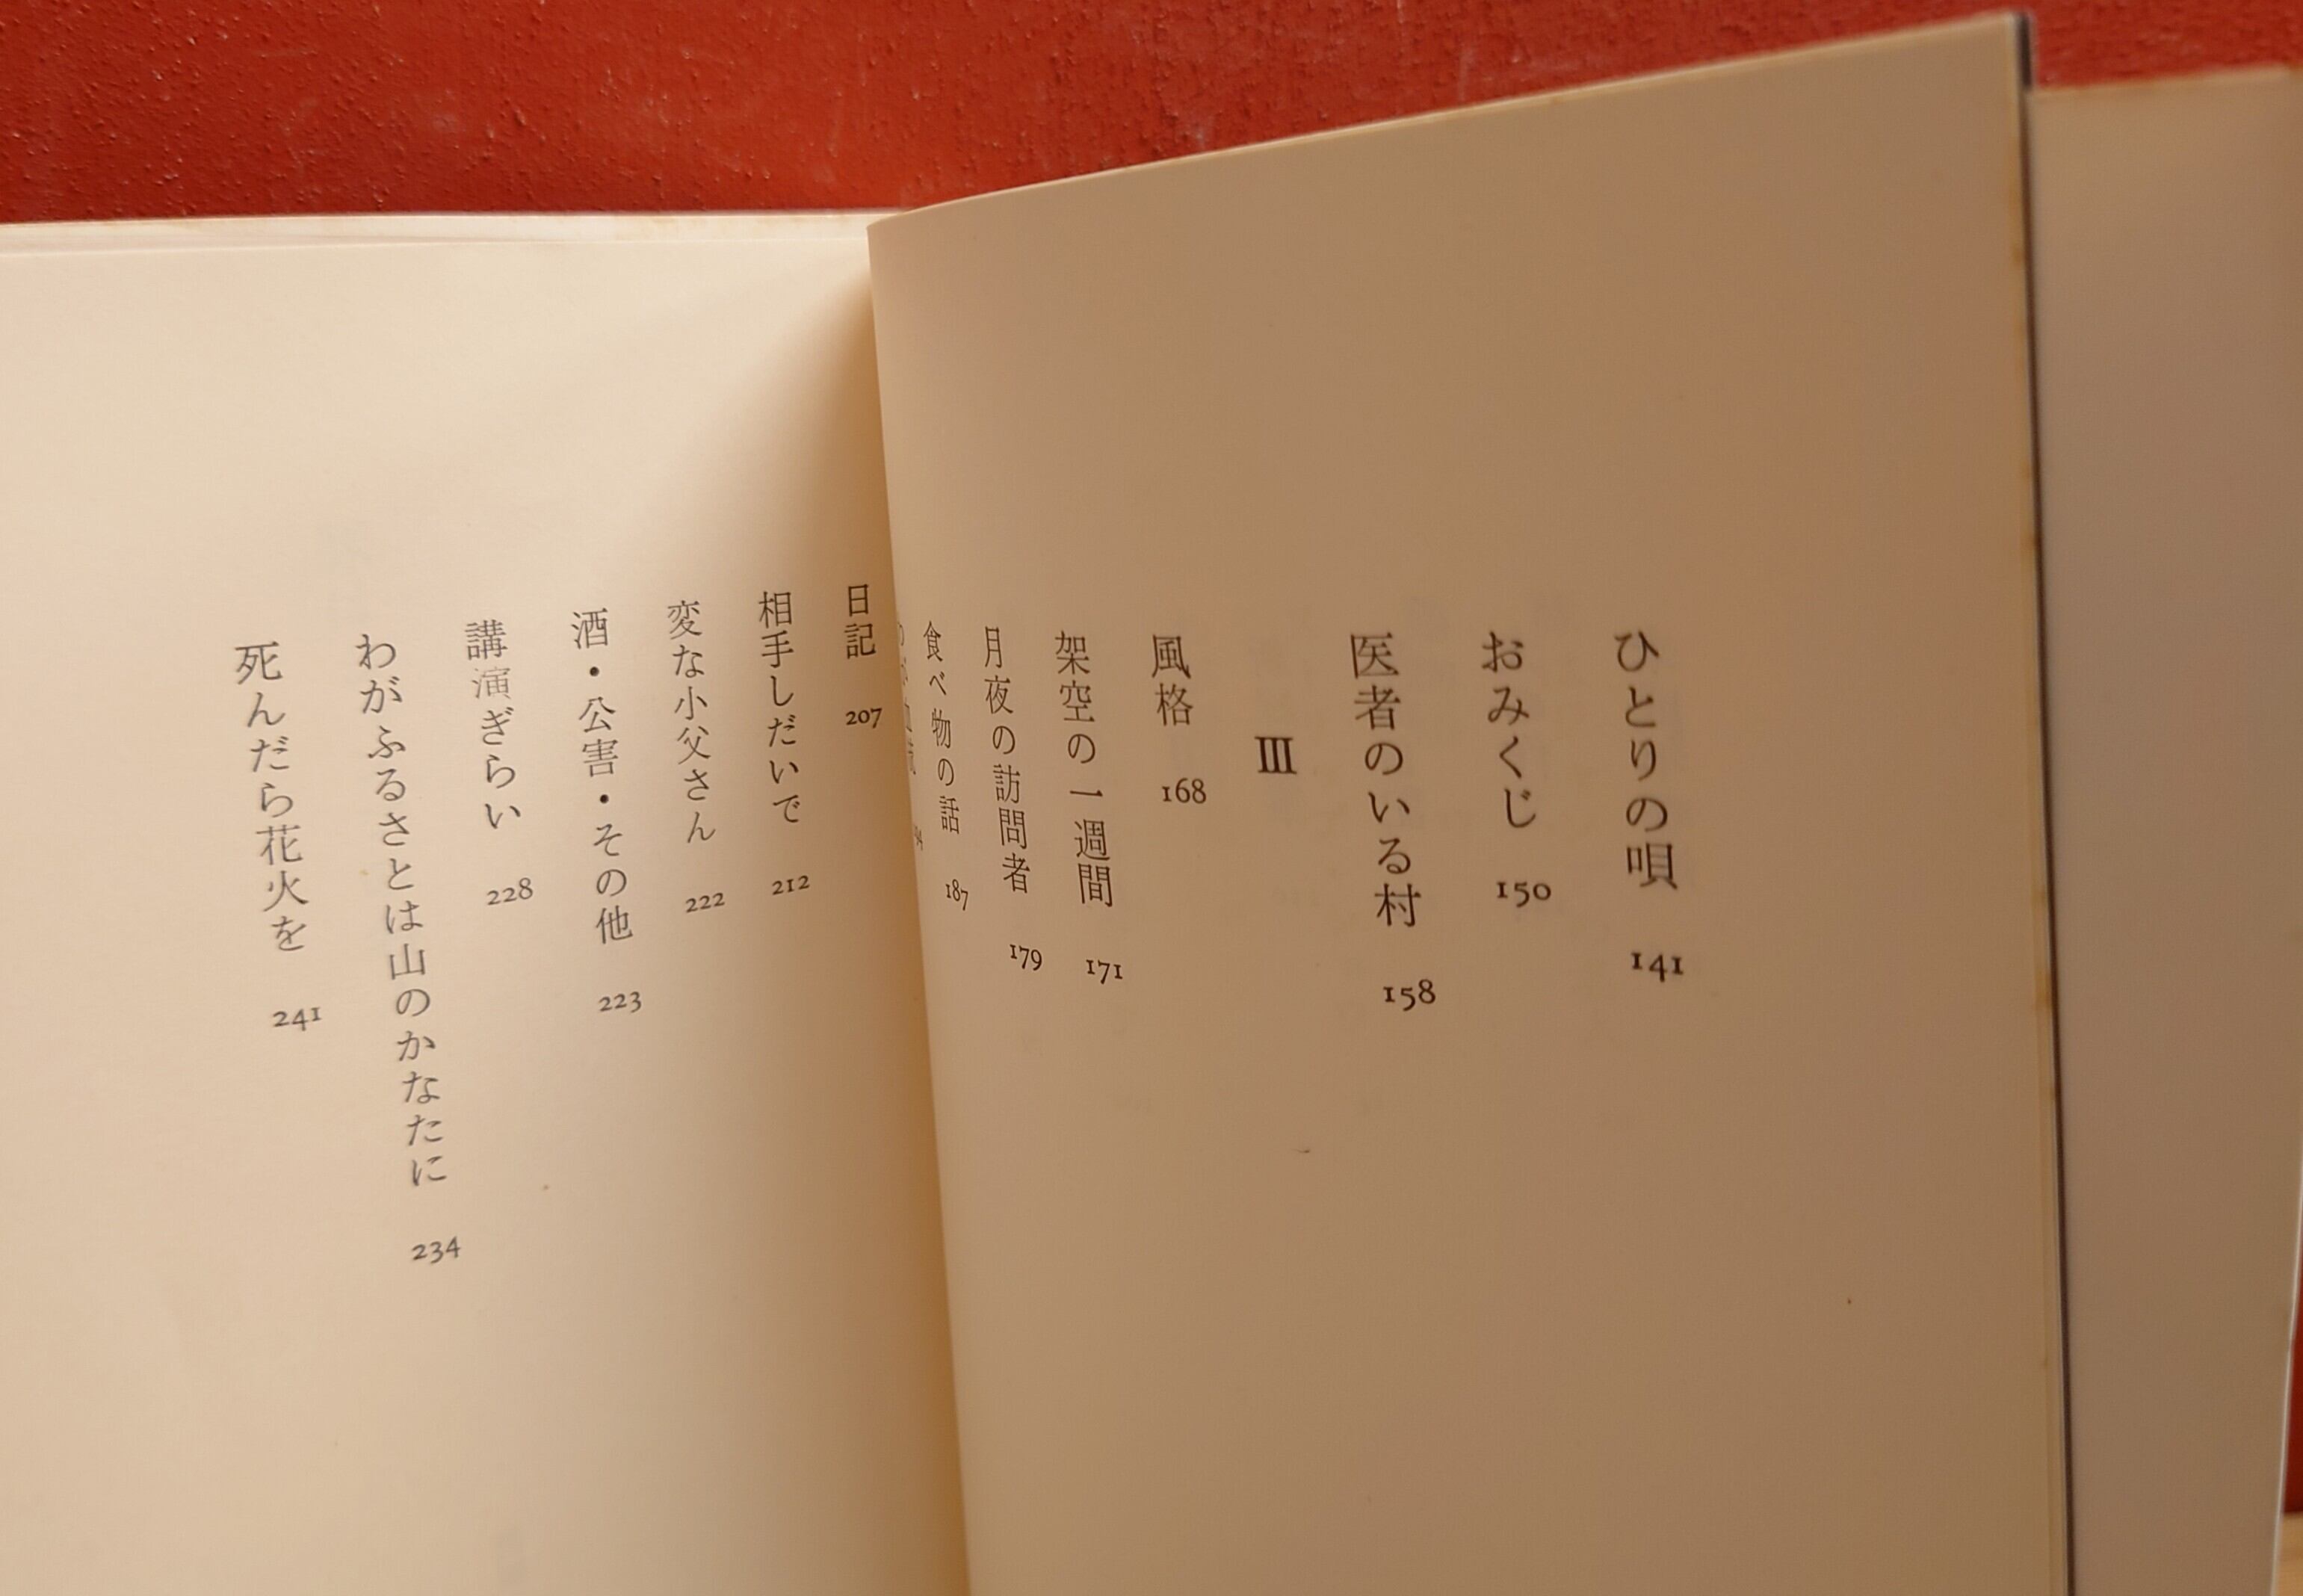 ひとりの唄 141
おみくじ 150
医者のいる村 158
Ⅲ
風格 168
架空の一週間 171
月夜の訪問者 179
食べ物の話 187
日記 207
相手しだいで 212
変な小父さん 222
酒・公害・その他 223
講演ぎらい 228
わがふるさとは山のかなたに 234
死んだら花火を 241